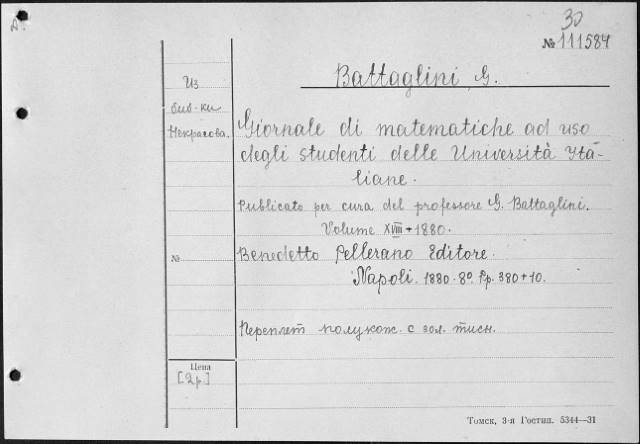 30
№ 111584
Battaglini, G.
Из
биб-ки
Некрасова.
Giornale di matematiche ad uso
degli studenti delle Università Ita-
liane.
Publicato per cura del professore G. Battaglini.
Volume XVIII + 1880.
№
Benedetto Pellerano Editore.
Napoli. 1880. 8º. Pp. 380+10.
Переплет полукож. с зол. тисн.
Цена
[2р.]
Томск, 3-я Гостип. 5344—31